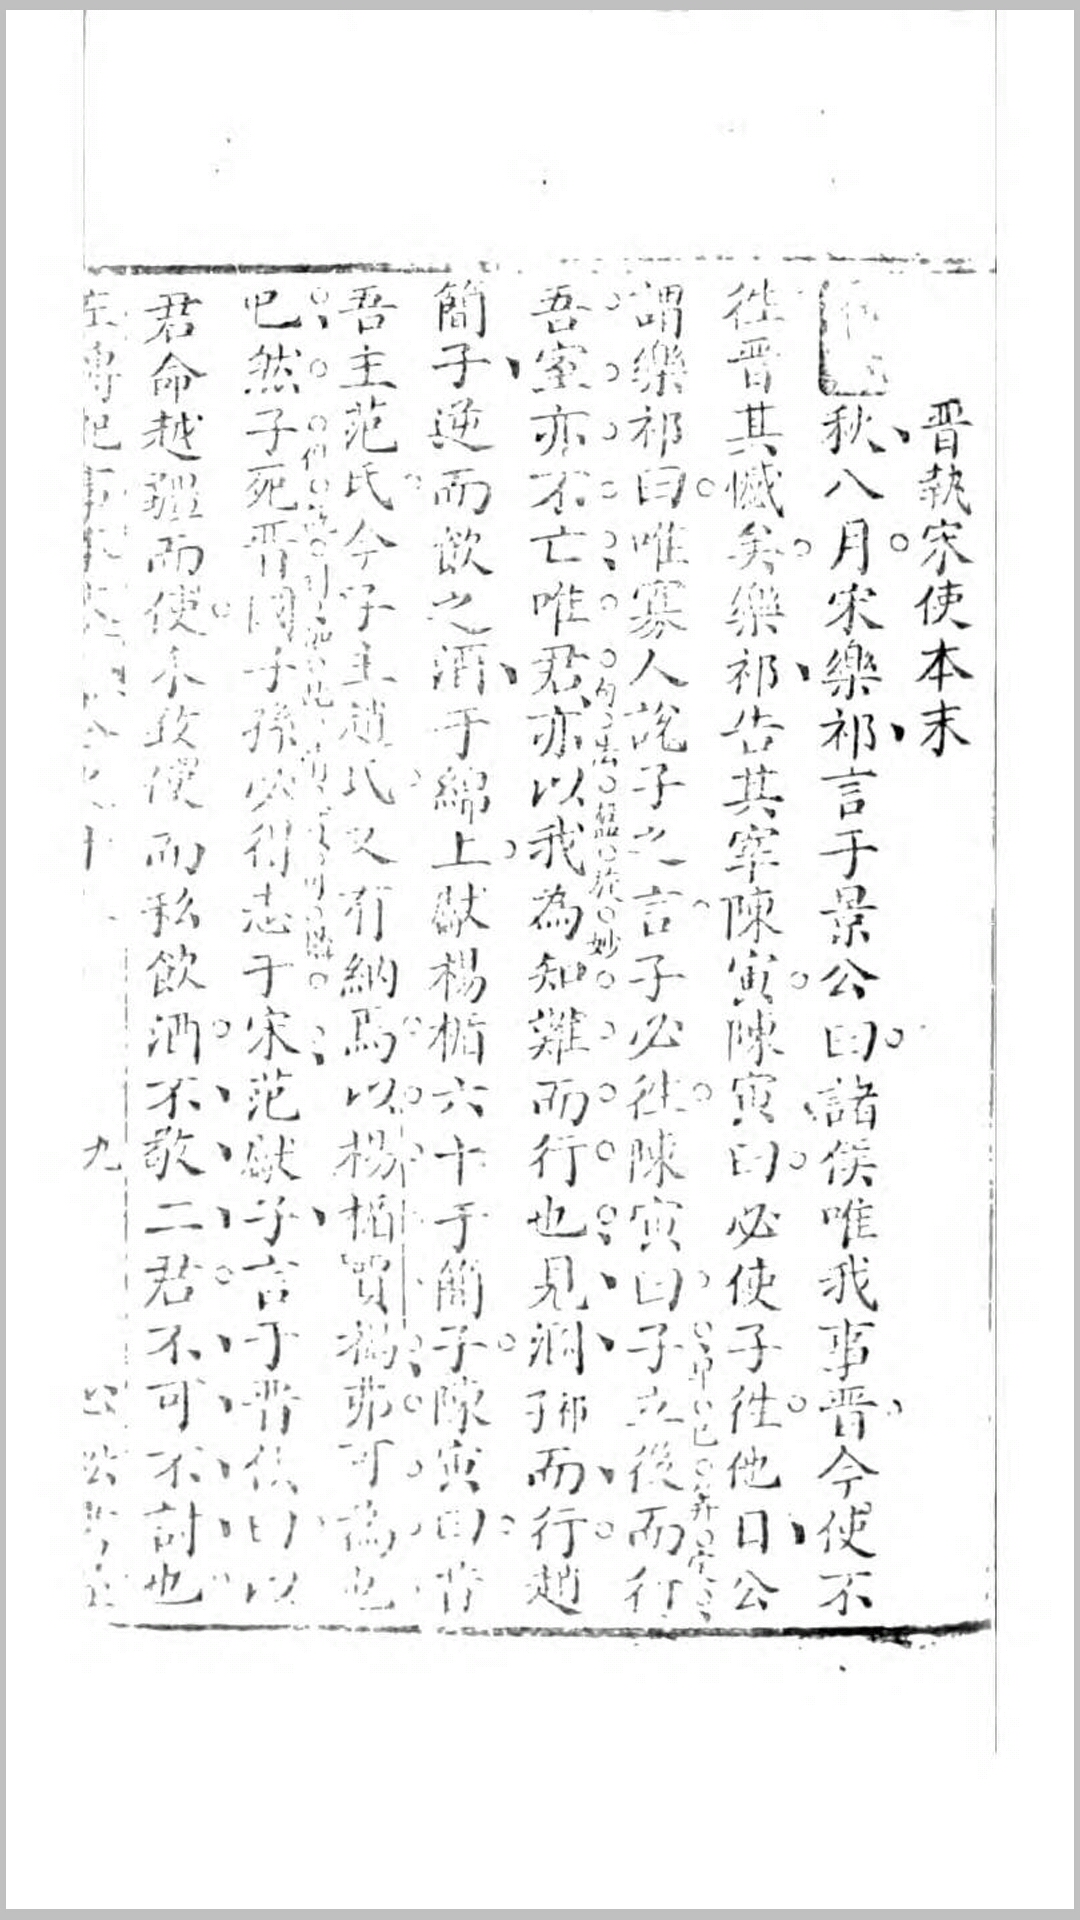 晋執宋使本末
秋八月宋樂祁言于景公曰諸侯唯我事晋今使不
徃晋其憾矣樂祁告其宰陳寅陳寅曰必使子徃他日公
謂樂祁曰唯寡人説子之言子必徃陳寅曰子立後而行
吾室亦不亡唯君亦以我為知難而行也見溷子祁而行趙
句法益於妙
簡子逆而飲之酒于綿上獻楊楯六十于簡子陳寅曰昔
吾主范氏今子主趙氏又有納焉以楊楯賈禍弗可為也
巳然子死晋國子孫必得志于宋范獻子言于晋侯曰以
君命越疆而使未致使而私飲酒不敬二君不可不討也
九